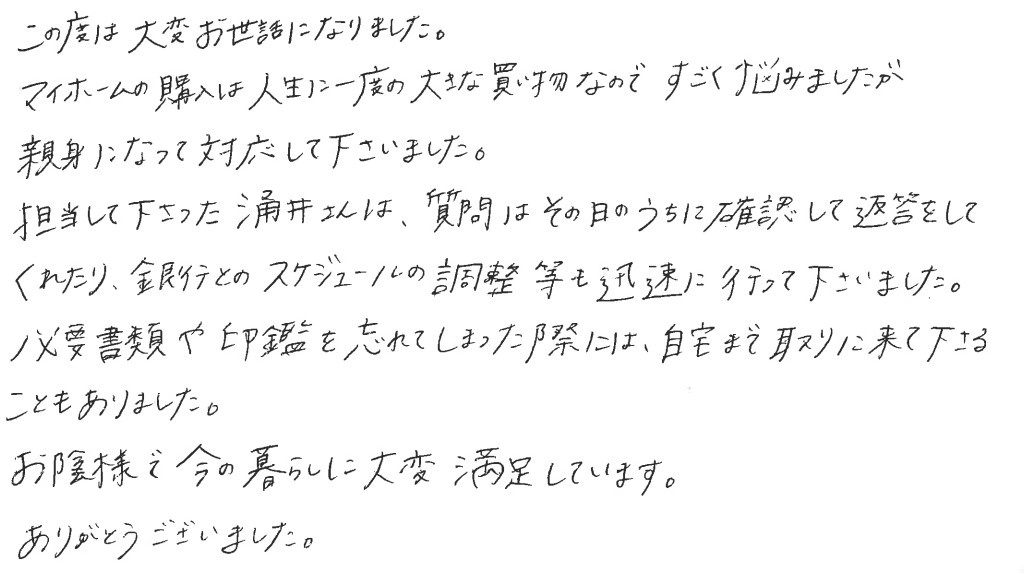 この度は大変お世話になりました。
マイホームの購入は人生に一度の大きな買い物なので すごく悩みましたが
親身になって対応して下さいました。
担当して下さった涌井さんは、質問はその日のうちに確認して返答をして
くれたり、銀行とのスケジュールの調整等も迅速に行って下さいました。
必要書類や印鑑を忘れてしまった際には、自宅まで取りに来て下さる
こともありました。
お陰様で今の暮らしに大変満足しています。
ありがとうございました。